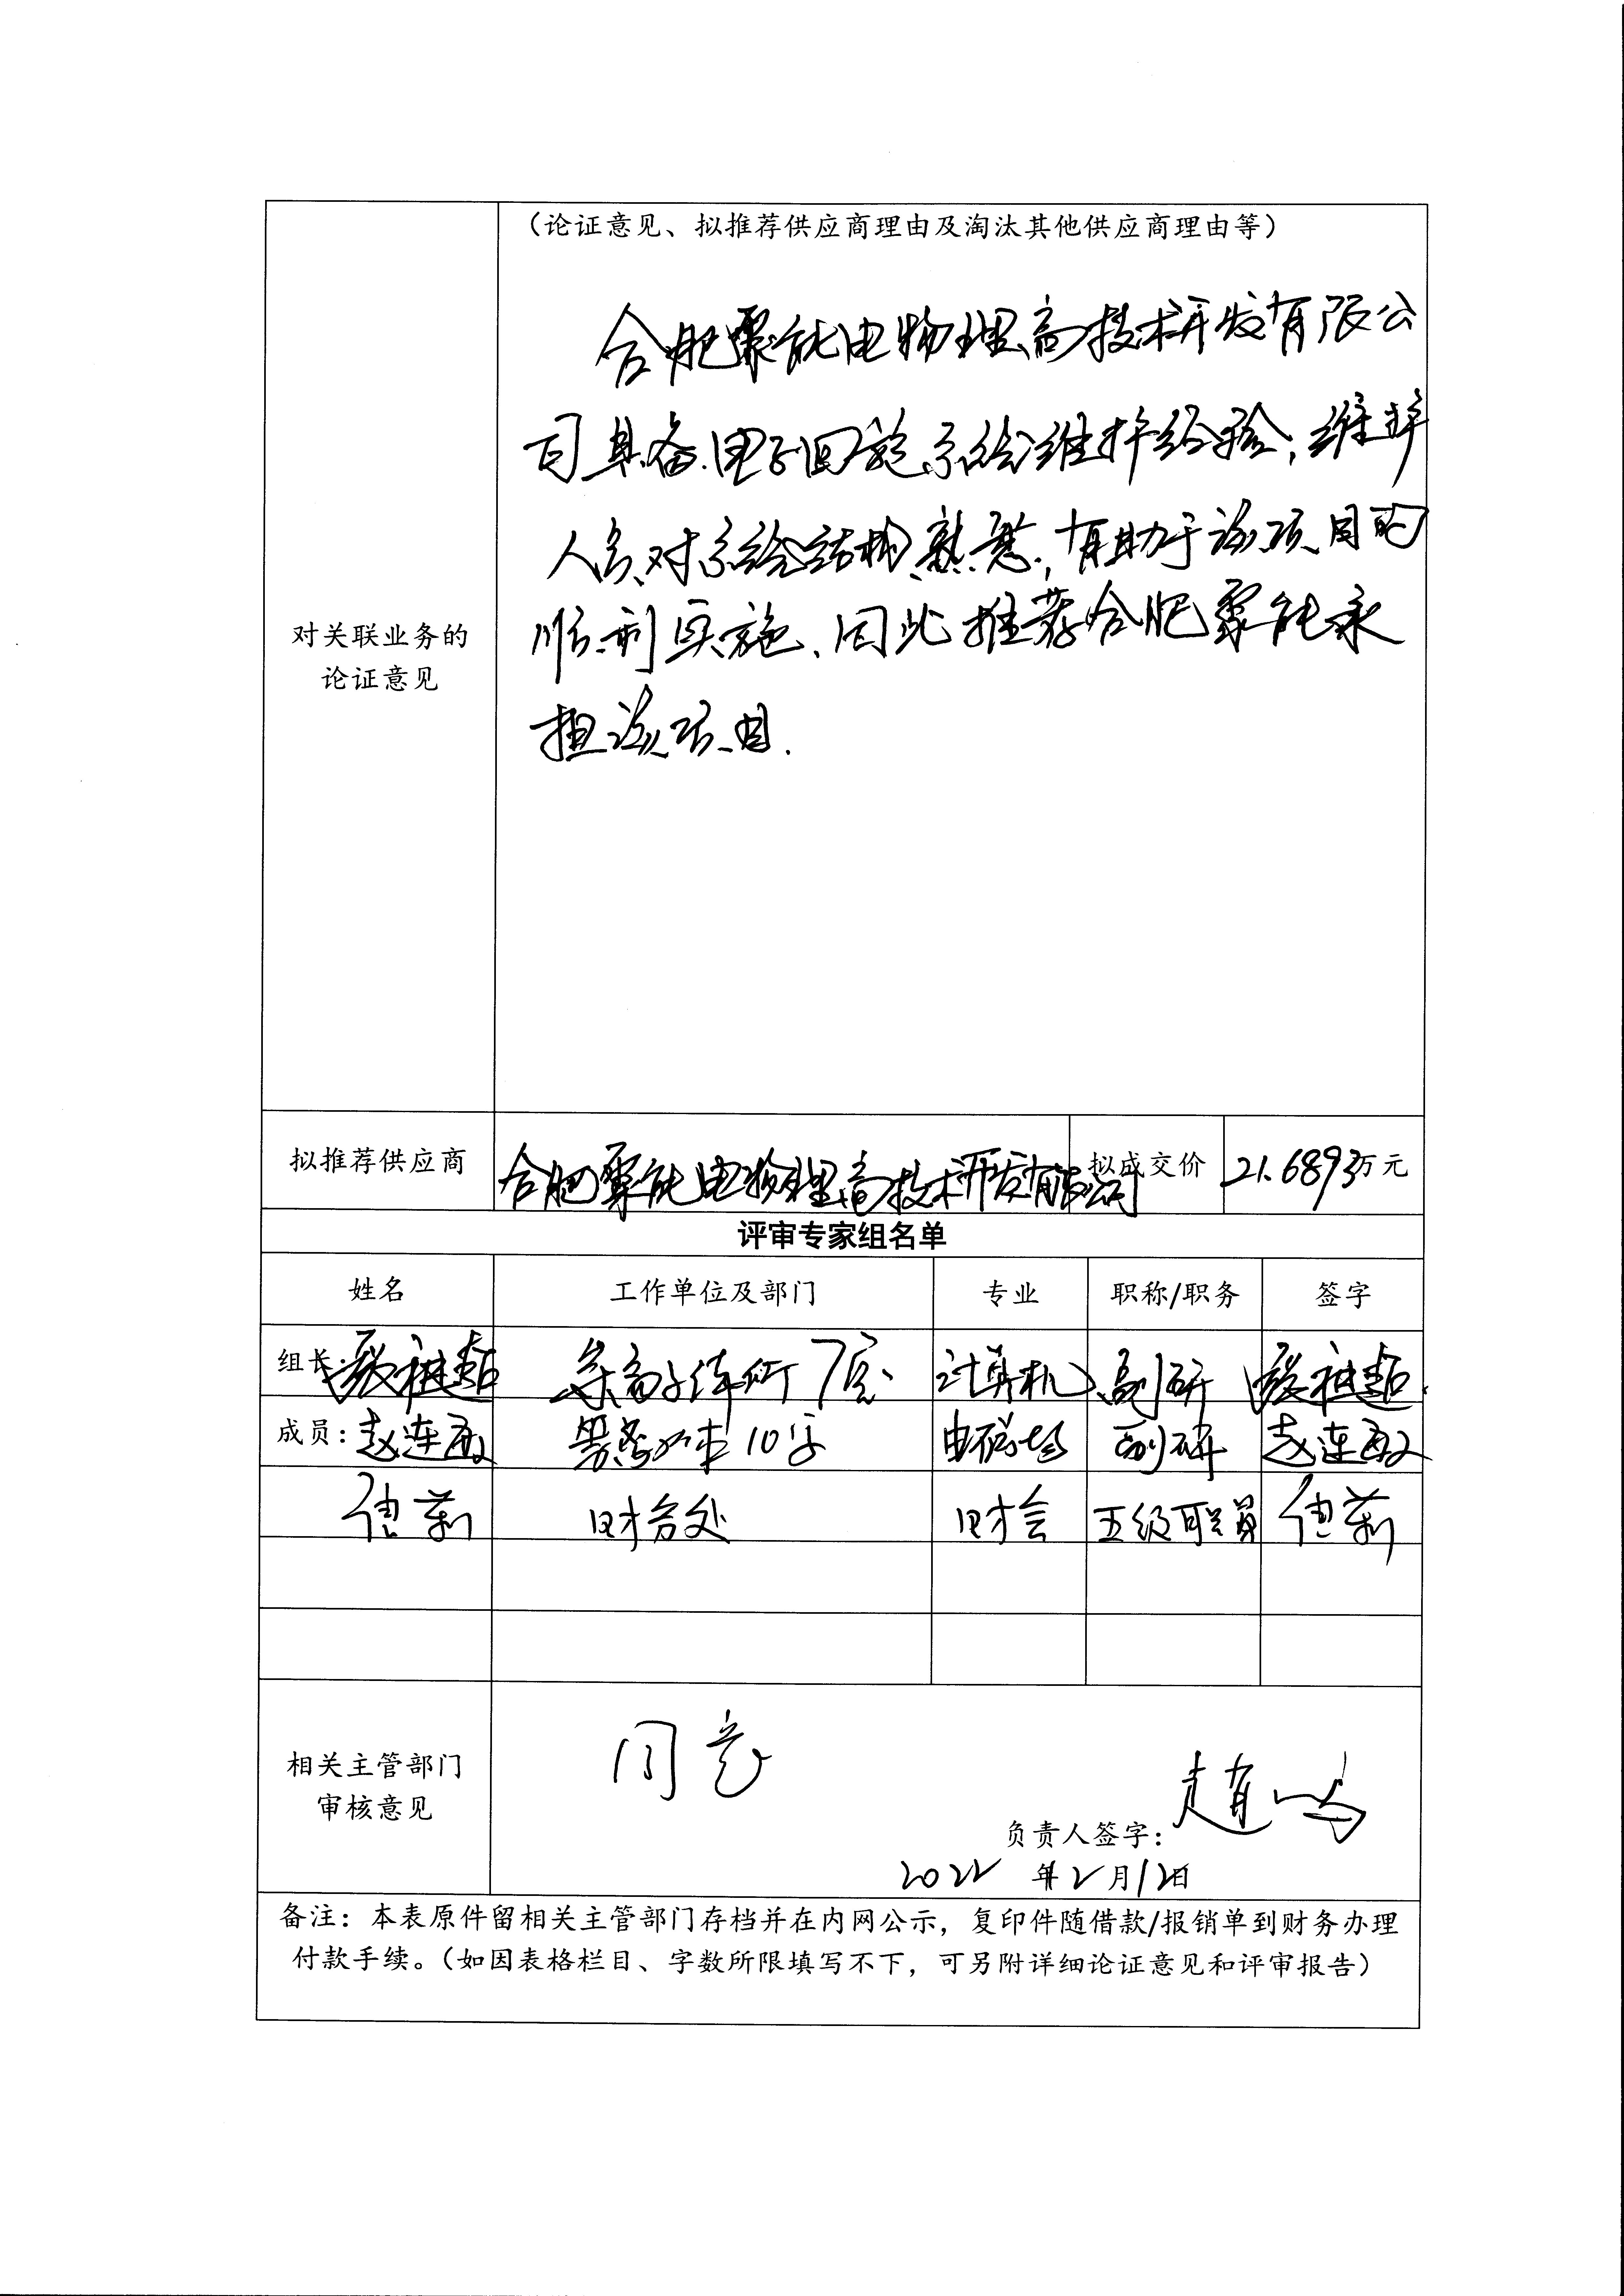 （论证意见、拟推荐供应商理由及淘汰其他供应商理由等）
合肥聚能电物理高技术开发有限公
司具备电子回旋系统维护经验，维护
人员对系统结构熟悉，有助于该项目的
顺利实施、因此推荐合肥聚能承
担该项目.
对关联业务的
论证意见
拟推荐供应商 合肥聚能电物理高技术开发有限公司 拟成交价 21.6893万元
评审专家组名单
姓名 工作单位及部门 专业 职称/职务 签字
组长： 等离子体所7室 计算机 副研
成员：赵连敏 10室 电磁场 副研 赵连敏
财务处 财会 五级职员
相关主管部门
审核意见
同意
负责人签字：
2022年2月12日
备注：本表原件留相关主管部门存档并在内网公示，复印件随借款/报销单到财务办理
付款手续。（如因表格栏目、字数所限填写不下，可另附详细论证意见和评审报告）